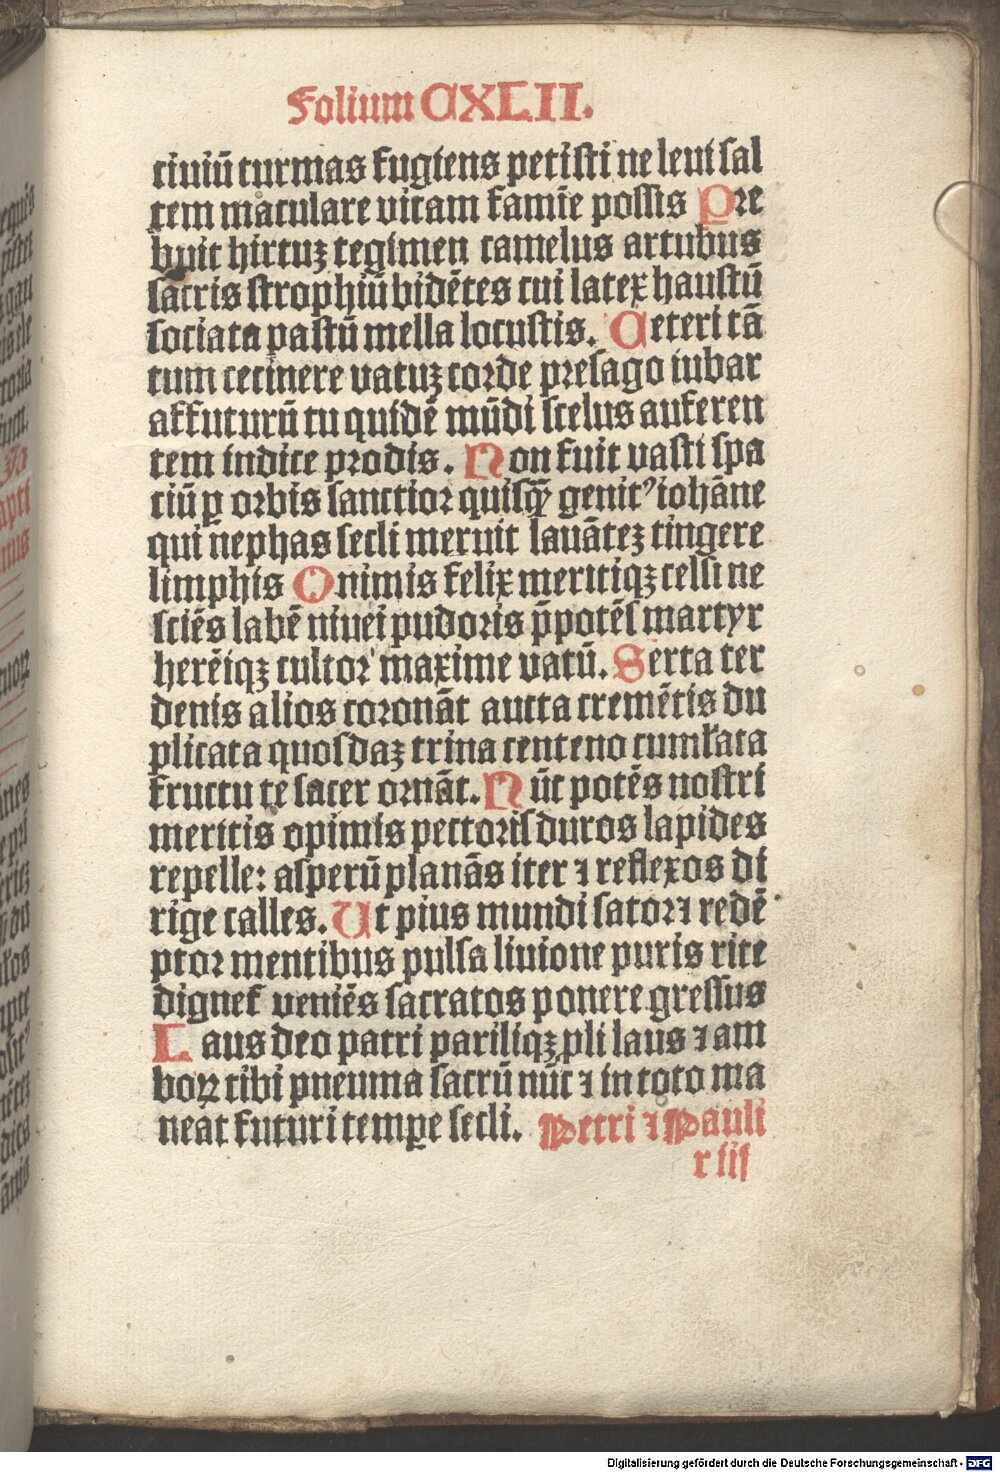 Folium CXLII.
ciuiū turmas fugiens petisti ne leui sal
tem maculare vitam famīe possis Pre
buit hirtuꝫ tegimen camelus artubus
sacris strophiū bidētes cui latex haustū
sociata pastū mella locustis. Ceteri tā
tum cecinere vatuꝫ corde presago iubar
affuturū tu quidē mūdi scelus auferen
tem indice prodis. Non fuit vasti spa
ciū ꝑ orbis sanctior quisꝙ̄ genitꝰ iohāne
qui nephas secli meruit lauāteꝫ tingere
limphis O nimis felix meritiqꝫ celsi ne
sciēs labē niuei pudoris p̄potēs martyr
herēiqꝫ cultor maxime vatū. Serta ter
denis alios coronāt aucta cremētis du
plicata quosdaꝫ trina centeno cumłata
fructu te sacer ornāt. Nūc potēs nostri
meritis opimis pectoris duros lapides
repelle: asperū planās iter ⁊ reflexos di
rige calles. Ut pius mundi sator ⁊ redē
ptor mentibus pulsa liuione puris rite
dignet̉ veniēs sacratos ponere gressus
Laus deo patri pariliqꝫ ꝓli laus ⁊ am
boꝝ tibi pneuma sacrū nūc ⁊ in toto ma
neat futuri tempe̱ secli. Petri ⁊ Pauli
r iij